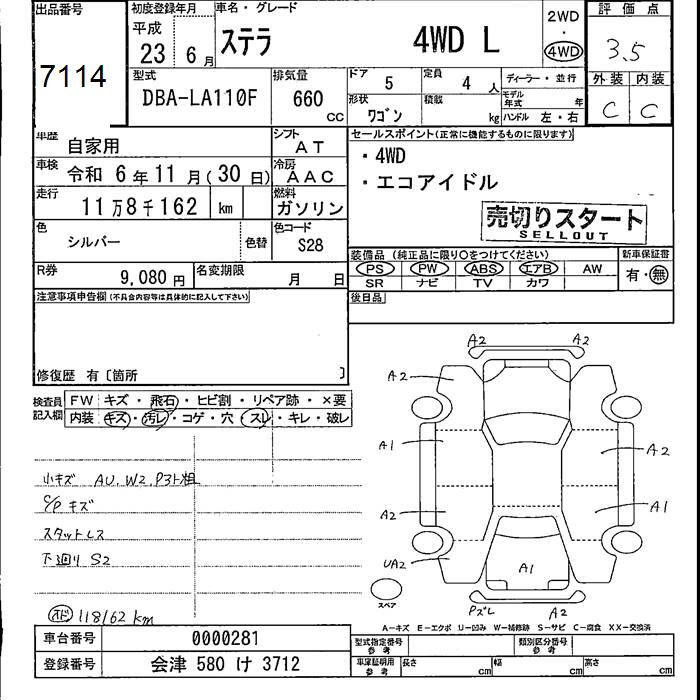 出品番号
7114
初度登録年月
平成
23 6月
車名・グレード
ステラ 4WD L
2WD
・
4WD
評価点
3.5
外装 内装
C C
型式
DBA-LA110F
排気量
660
CC
ドア
5
定員
4人
形状
ワゴン
積載
kg
ディーラー・並行
モデル年式 年
ハンドル 左・右
車歴
自家用
シフト
AT
車検
令和 6年 11月(30日)
冷房
AAC
走行
11万8千162 km
燃料
ガソリン
色
シルバー
色替
色コード
S28
R券
9,080円
名変期限
月 日
セールスポイント(正常に機能するものに限ります)
・4WD
・エコアイドル
売切りスタート
SELLOUT
装備品(純正品に限り○をつけてください)
PS PW ABS エアB AW
SR ナビ TV カワ
新車保証書
有・無
後日品
注意事項申告欄(不具合内容等は具体的に記入して下さい)
修復歴 有〔箇所 〕
検査員記入欄
FW キズ・飛石・ヒビ割・リペア跡・×要
内装 キズ・汚レ・コゲ・穴・スレ・キレ・破レ
小キズ AU、W2、P3ト粗
C/P キズ
スタットレス
下廻り S2
118162 km
A2 A2
A2
A1 A2
A2 A1
UA2
A1
スペア
Pズレ A2
A-キズ E-エクボ U-凹み W-補修跡 S-サビ C-腐食 XX-交換済
車台番号
0000281
登録番号
会津 580 け 3712
型式指定番号
参考
類別区分番号
参考
車庫証明用
参考
長さ cm
幅 cm
高さ cm